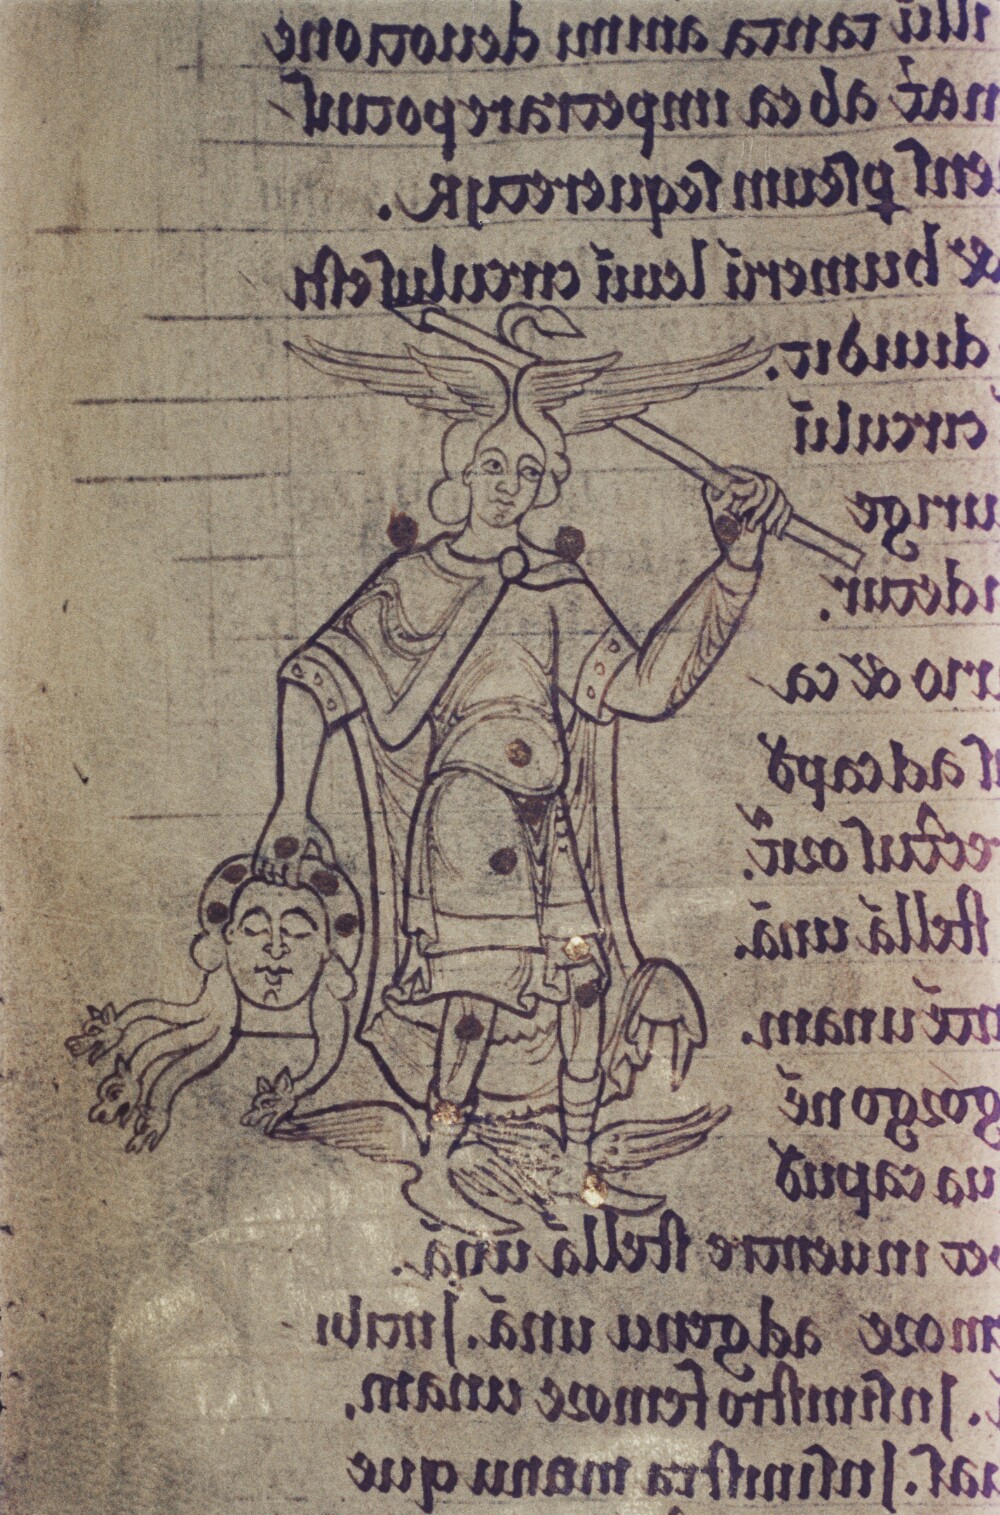 illū tanta animi deuotione
ab ea impetrare potuiſ
enſ pſeum ſequeretur.
& humerū leuū circuluſ eſti
diuidit.
circulū
urige
idetur.
rio & ca
ad capđ
rectuſ orit̄.
ſtellā unā.
ntē unam.
gorgonē
ua capuđ
et in uentre ſtellā unā.
more ad genu unā. In tibi
. In ſiniſtro femore unam.
uaſ. In ſiniſtra manu que